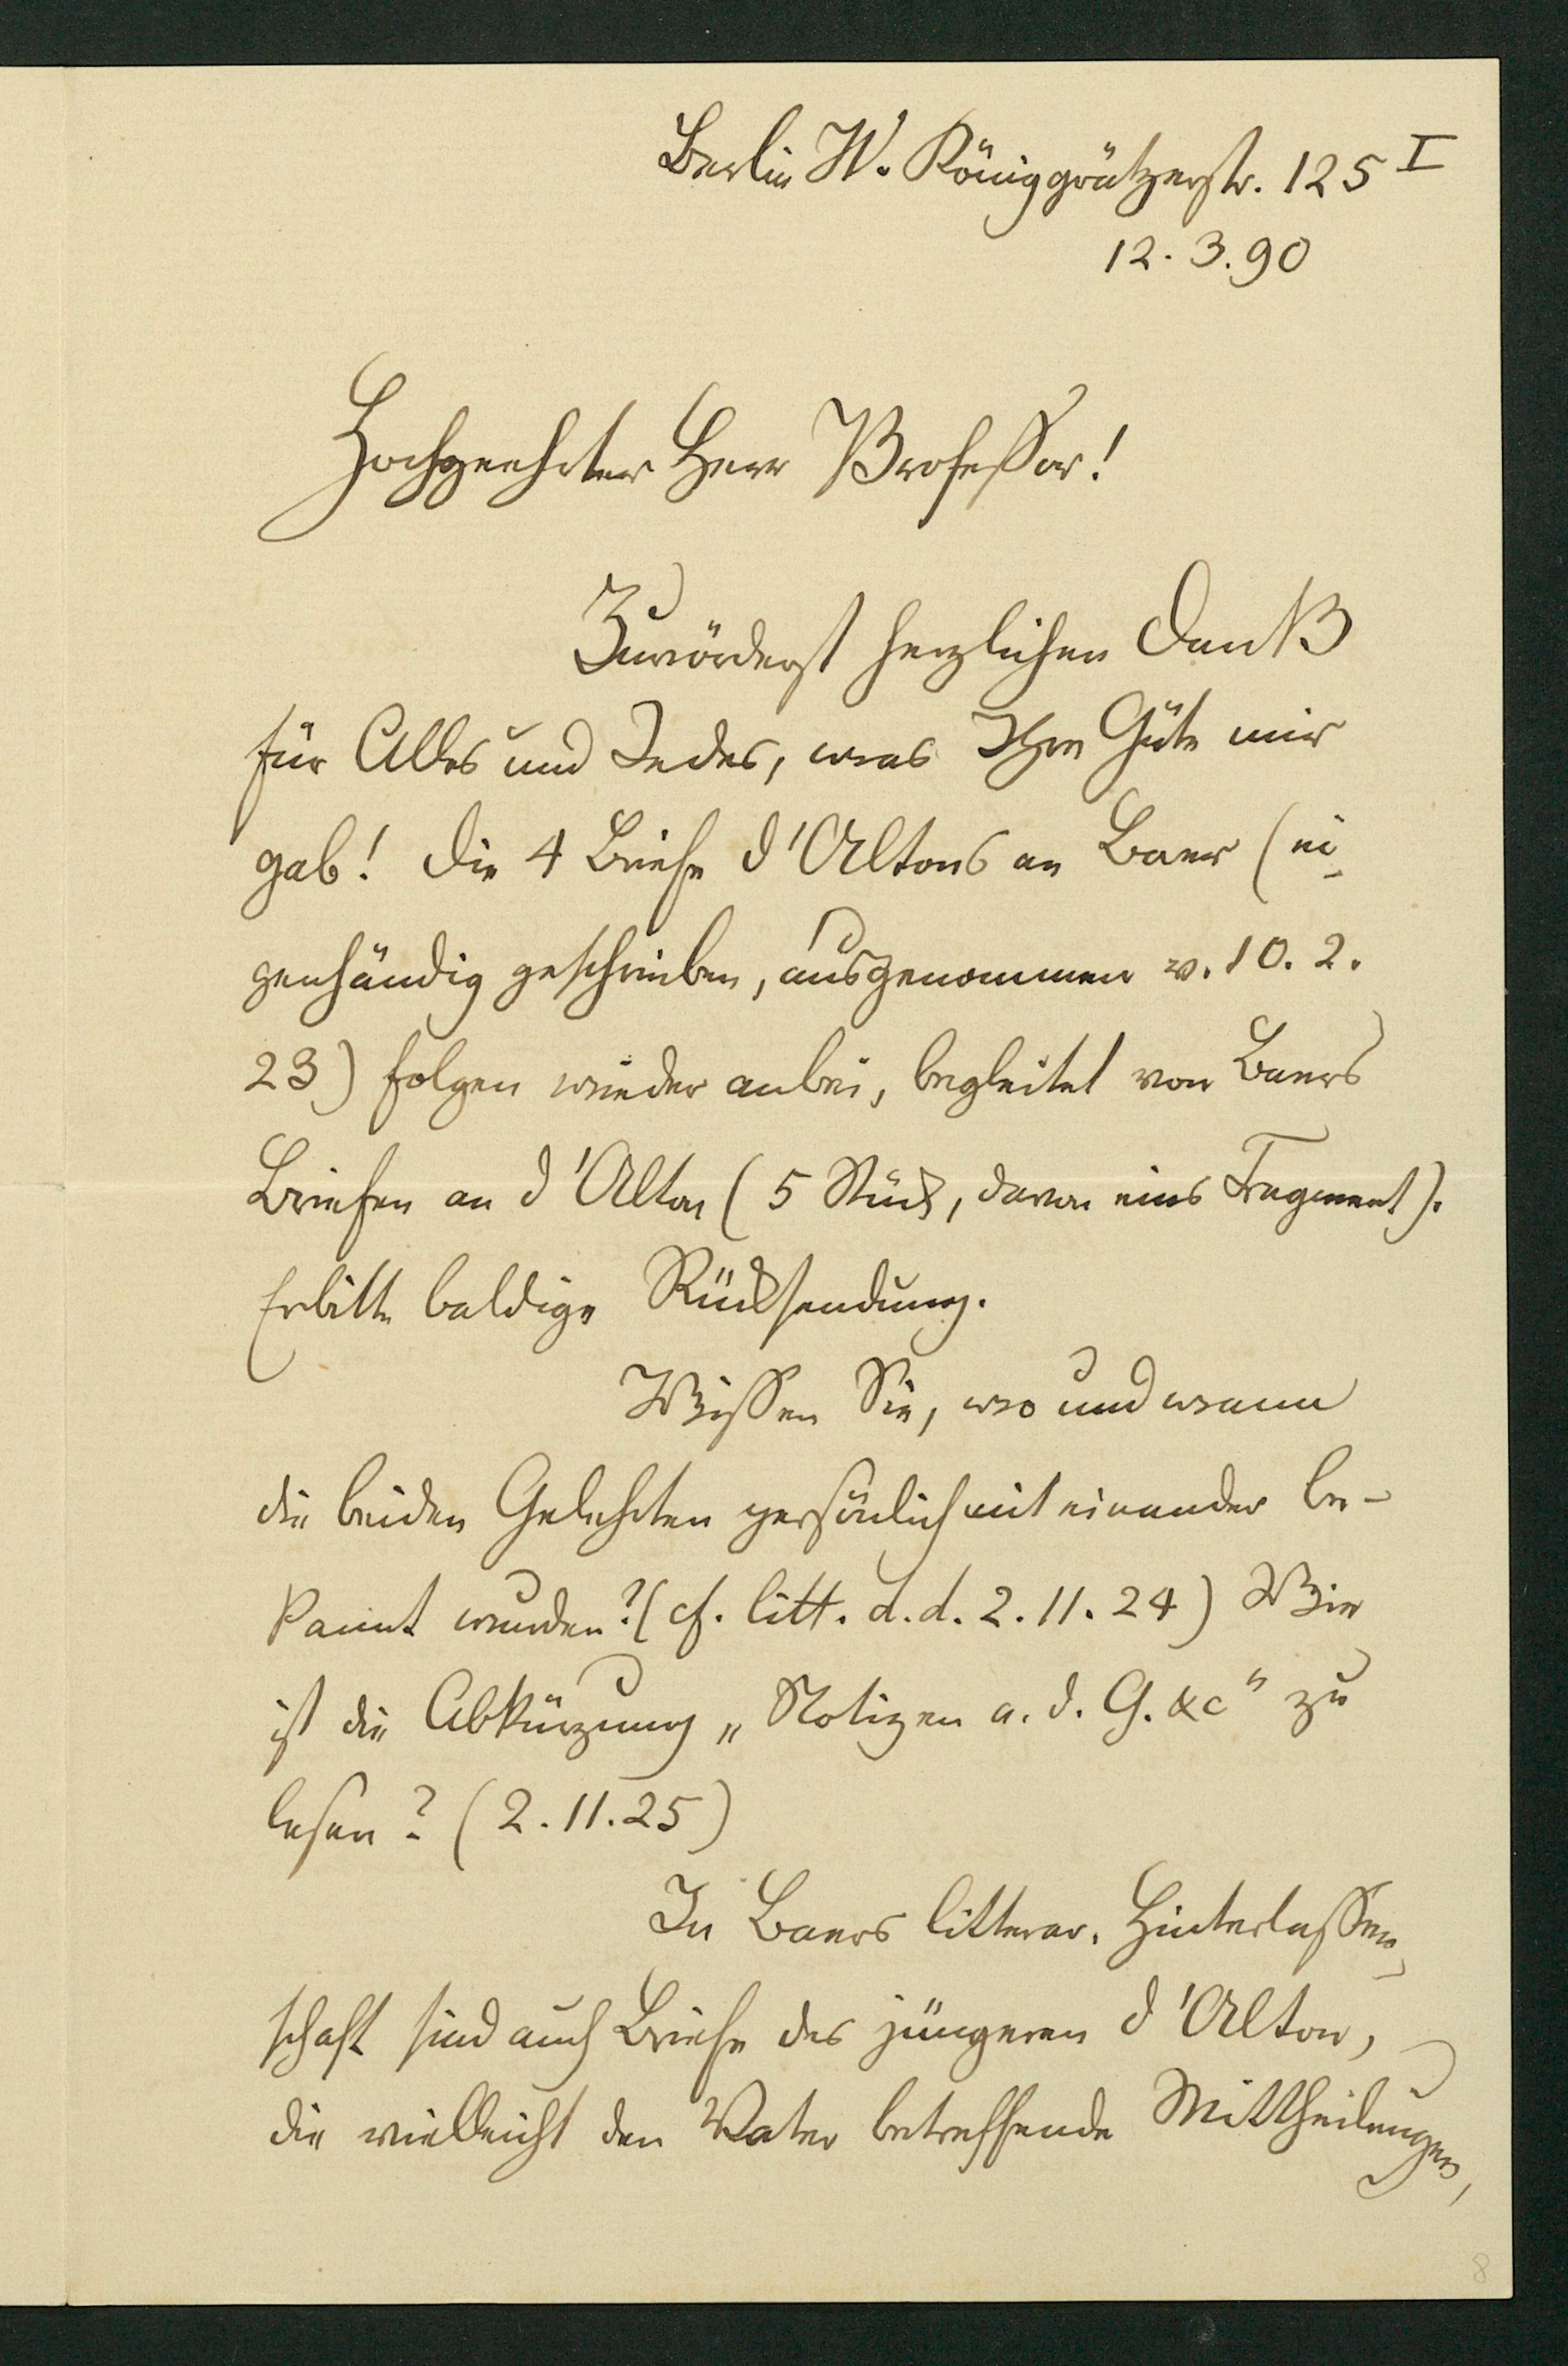 Berlin W. Königgrätzerstr. 125 I
12. 3. 90
Hochgeehrter Herr Professor!
Zuvörderst herzlichen Dank
für Alles und Jedes, was Ihre Güte mir
gab! Die 4 Briefe d'Altons an Baer (ei-
genhändig geschrieben, ausgenommen v. 10. 2.
23) folgen wieder anbei, begleitet von Baers
Briefen an d'Alton (5 Stück, davon eins Fragment).
Erbitte baldige Rücksendung.
Wissen Sie, wo und wann
die beiden Gelehrten persönlich mit einander be-
kannt wurden? (cf. litt. d. d. 2. 11. 24) Wie
ist die Abkürzung „Notizen a. d. G. &c" zu
lesen? (2. 11. 25)
In Baers litterar. Hinterlassen-
schaft sind auch Briefe des jüngeren d'Alton,
die vielleicht den Vater betreffende Mittheilungen,
8